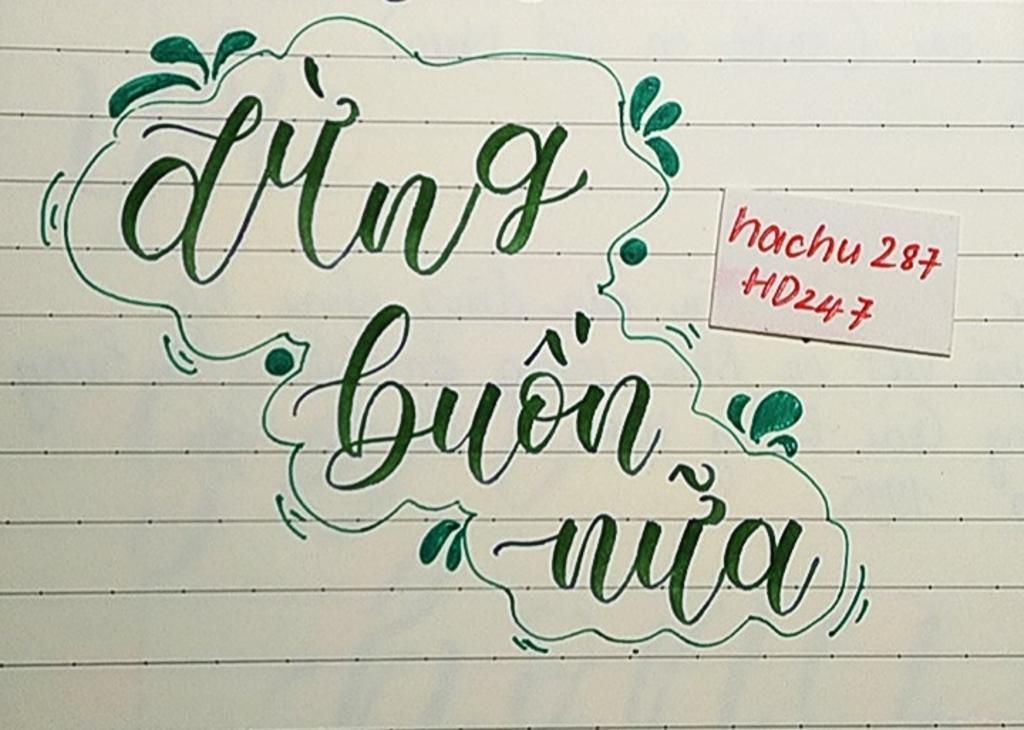 đừng
buồn
nữa
hachu 287
HD247